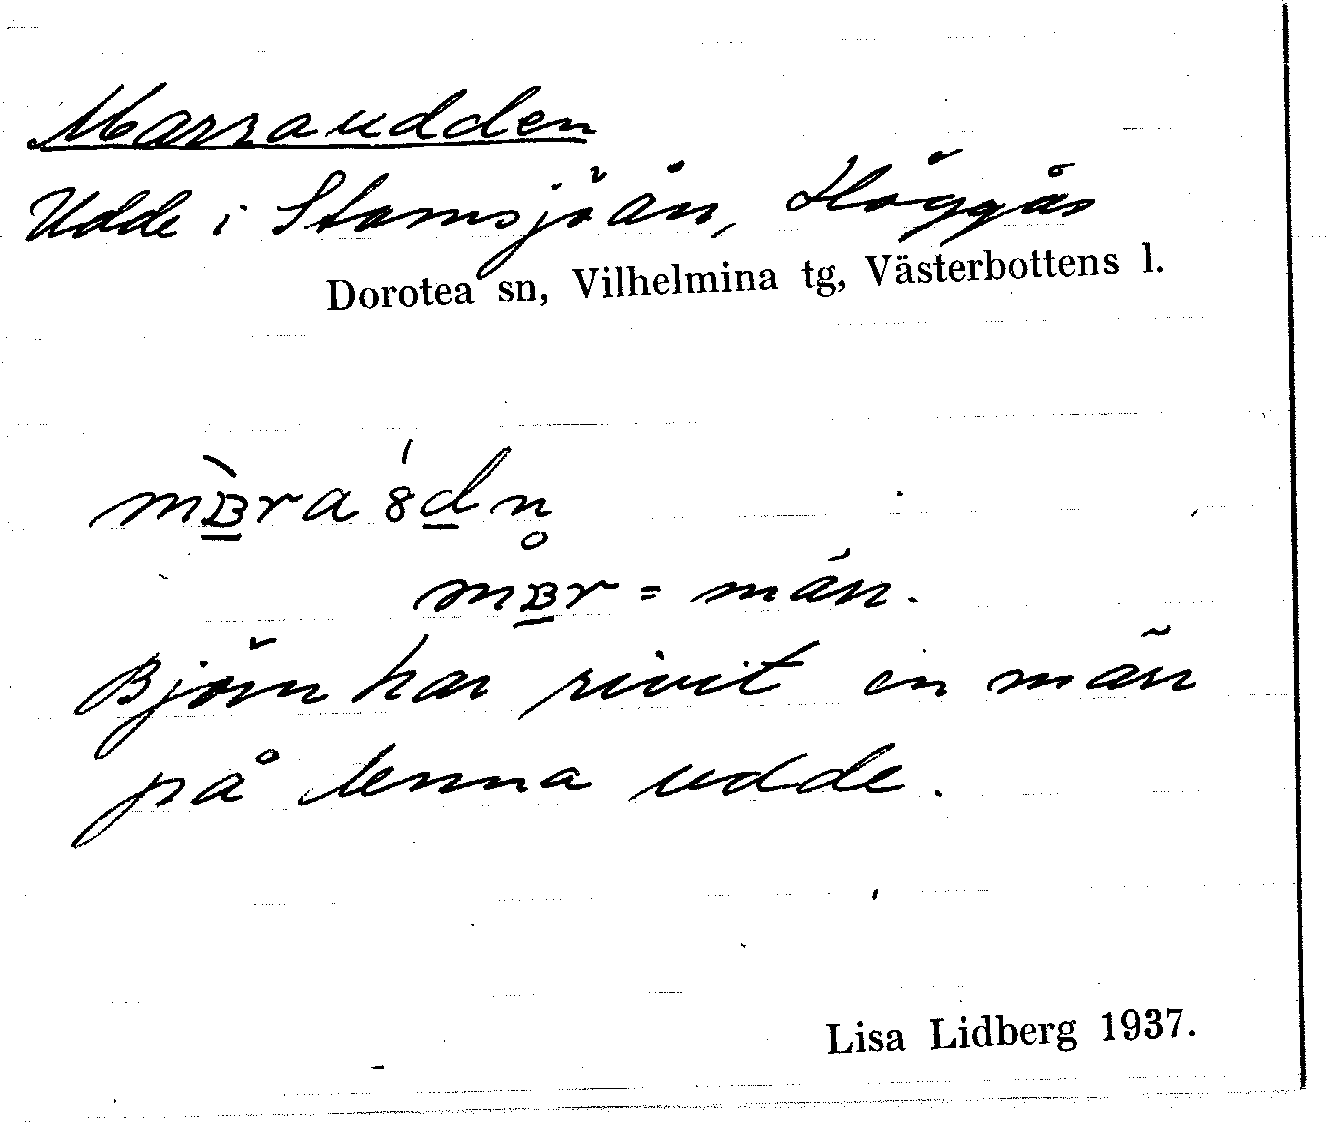 Marraudden
Udde i Stamsjöån, Höggås
Dorotea sn, Vilhelmina tg, Västerbottens l.
mʙ̲̀ra ȣ́d̲n̥
mʙ̲r = märr.
Björn har rivit en märr
på denna udde.
Lisa Lidberg 1937.